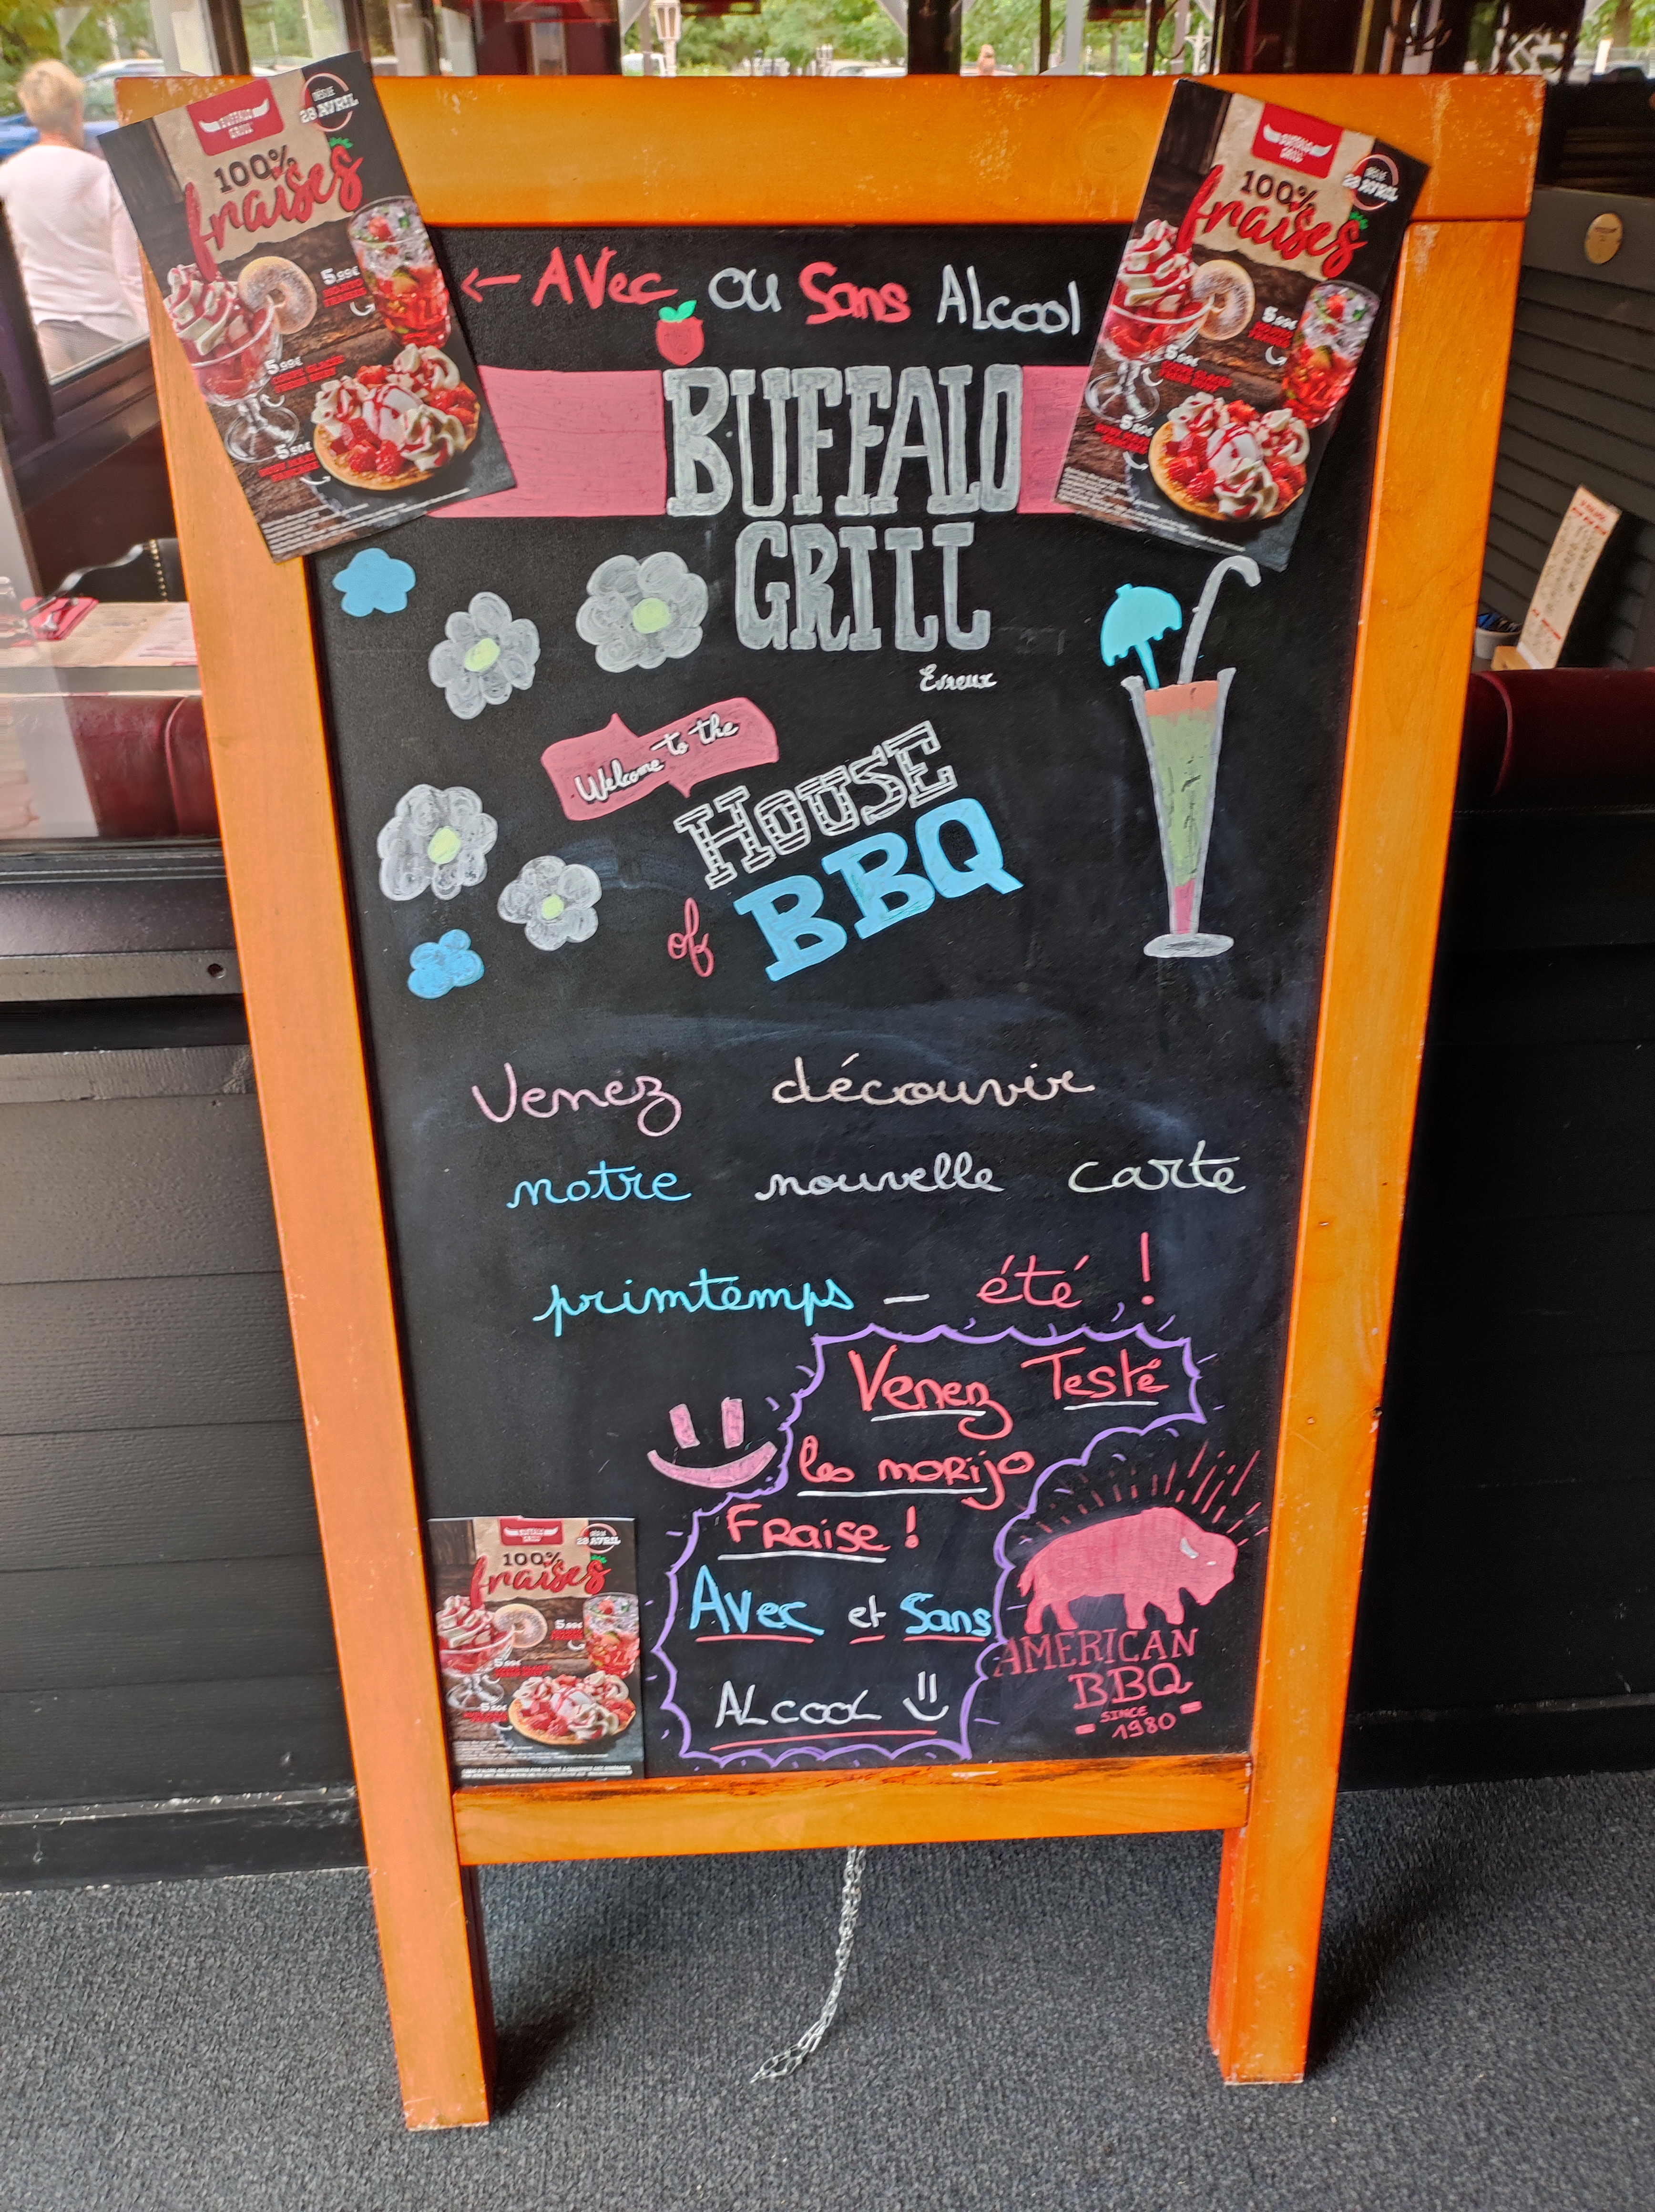 BUFFALO
GRILL
DÈS LE
28 AVRIL
100%
fraises
5,99€
5,99€
5,50€
BUFFALO
GRILL
DÈS LE
28 AVRIL
100%
fraises
5,99€
5,99€
5,50€
← AVec ou Sans ALcool
BUFFALO
GRILL
Evreux
Welcome to the
HOUSE
of BBQ
Venez découvrir
notre nouvelle carte
primtemps _ été !
Venez Testé
les moRijo
FRaise !
AVec et Sans
ALcooL
AMERICAN
BBQ
SINCE
1980
BUFFALO
GRILL
DÈS LE
28 AVRIL
100%
fraises
5,99€
5,99€
5,50€